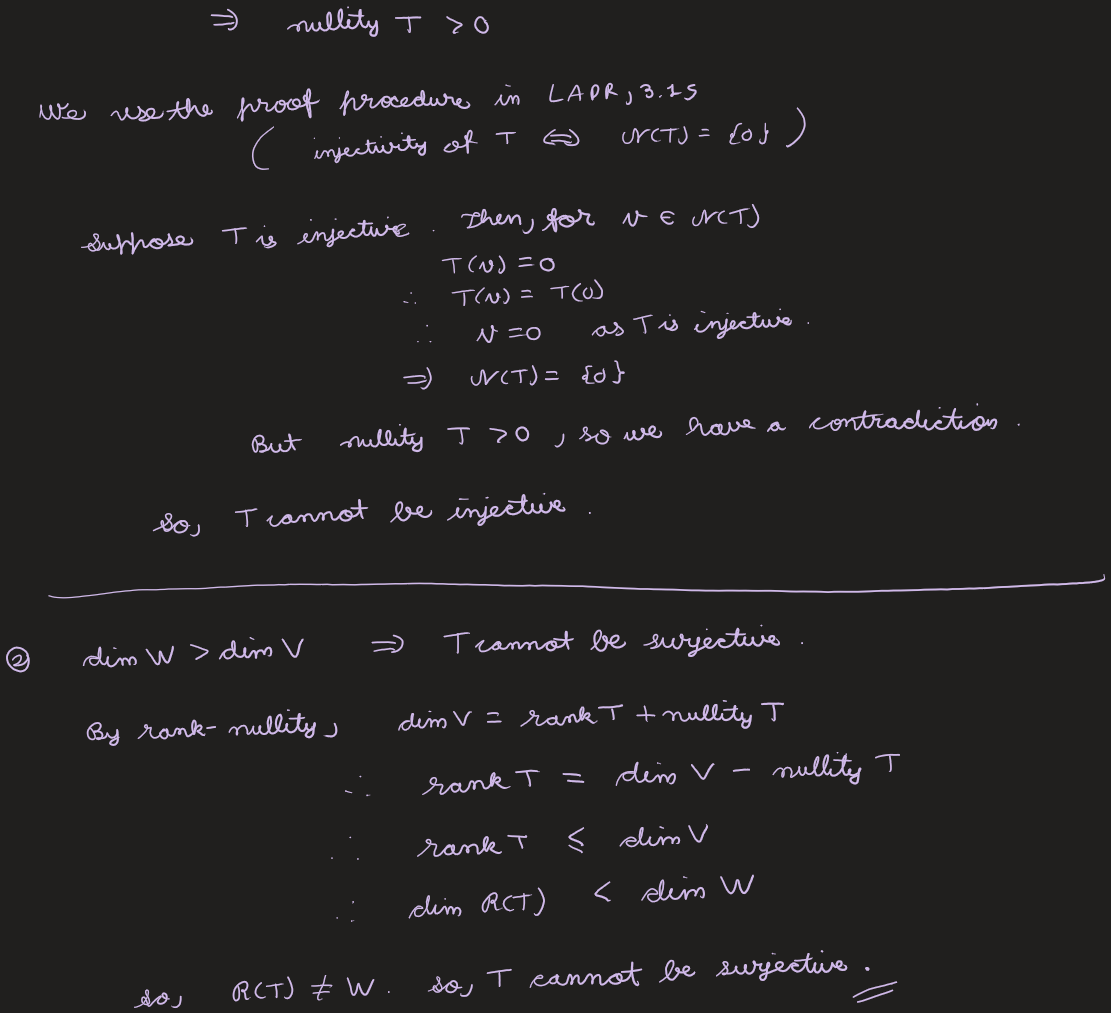 ⇒ nullity T > 0
We use the proof procedure in LADR, 3.15
( injectivity of T ⇔ N(T) = {0} )
Suppose T is injective. Then, for v ∈ N(T)
T(v) = 0
∴ T(v) = T(0)
∴ v = 0 as T is injective.
⇒ N(T) = {0}
But nullity T > 0, so we have a contradiction.
So, T cannot be injective.
② dim W > dim V ⇒ T cannot be surjective.
By rank-nullity, dim V = rank T + nullity T
∴ rank T = dim V - nullity T
∴ rank T ≤ dim V
∴ dim R(T) < dim W
So, R(T) ≠ W. So, T cannot be surjective.